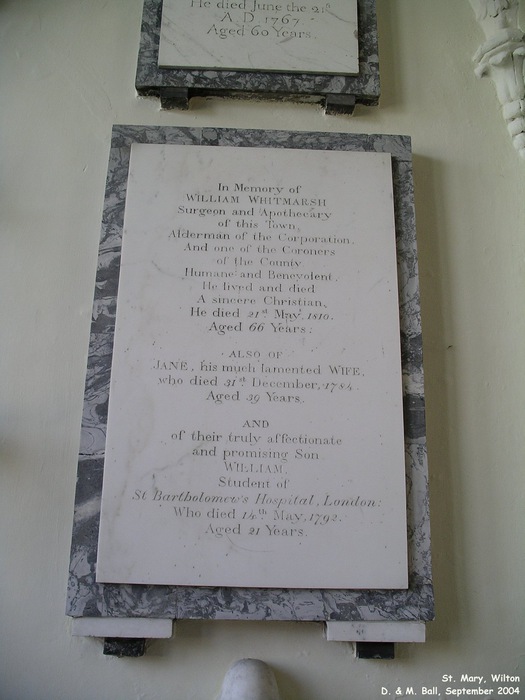 He died June the 21st
A.D. 1767.
Aged 60 Years.
In Memory of
WILLIAM WHITMARSH
Surgeon and Apothecary
of this Town,
Alderman of the Corporation.
And one of the Coroners
of the County.
Humane and Benevolent.
He lived and died
A sincere Christian,
He died 21st May, 1810.
Aged 66 Years:
ALSO OF
JANE, his much lamented WIFE,
who died 31st December, 1784.
Aged 39 Years.
AND
of their truly affectionate
and promising Son
WILLIAM,
Student of
St Bartholomew's Hospital, London:
Who died 14th May, 1792.
Aged 21 Years.
St. Mary, Wilton
D. & M. Ball, September 2004